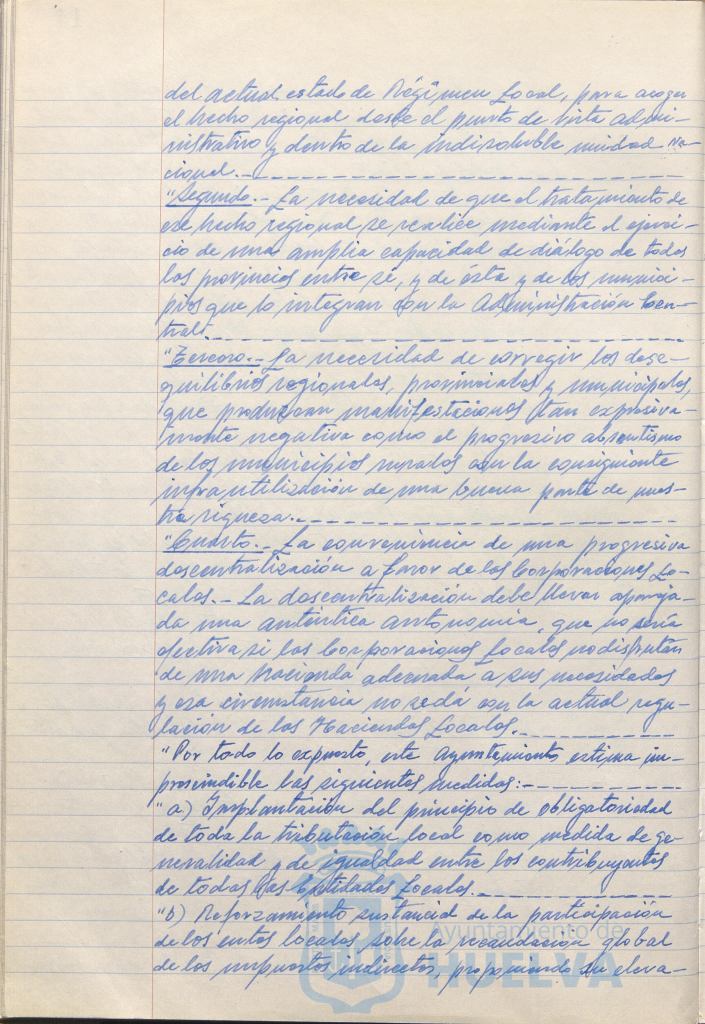 del actual estado de Régimen Local, para acoger
el hecho regional desde el punto de vista admi-
nistrativo y dentro de la indisoluble unidad Na-
cional.-
"Segundo.- La necesidad de que el tratamiento de
ese hecho regional se realice mediante el ejerci-
cio de una amplia capacidad de diálogo de todas
las provincias entre sí, y de ésta y de los munici-
pios que la integran con la Administración Cen-
tral.
"Tercero.- La necesidad de corregir los dese-
quilibrios regionales, provinciales y municipales,
que produzcan manifestaciones tan expresiva-
mente negativa como el progresivo absentismo
de los municipios rurales con la consiguiente
infrautilización de una buena parte de nues-
tra riqueza.-
"Cuarto.- La conveniencia de una progresiva
descentralización a favor de las Corporaciones Lo-
cales.- La descentralización debe llevar apareja-
da una auténtica autonomía, que no sería
efectiva si las Corporaciones Locales no disfrutan
de una hacienda adecuada a sus necesidades
y esa circunstancia no se dá con la actual regu-
lación de las Haciendas Locales.
"Por todo lo expuesto, este Ayuntamiento estima im-
prescindible las siguientes medidas:-
"a) Implantación del principio de obligatoriedad
de toda la tributación local como medida de ge-
neralidad y de igualdad entre los contribuyentes
de todas las Entidades Locales.
"b) Reforzamiento sustancial de la participación
de los entes locales sobre la recaudación global
de los impuestos indirectos, proponiendo su eleva-
Ayuntamiento de
HUELVA